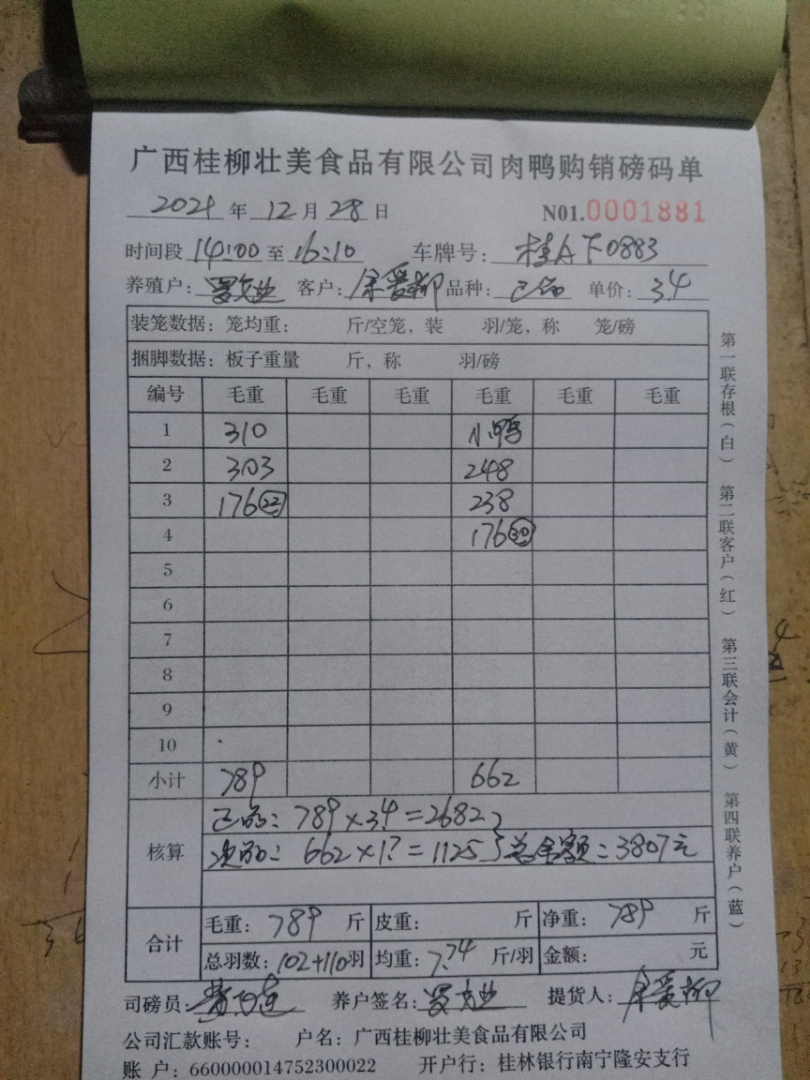 广西桂柳壮美食品有限公司肉鸭购销磅码单
2021 年 12 月 28 日 N01.0001881
时间段 14:00 至 16:10 车牌号: 桂A F0883
养殖户: 客户: 余爱柳 品种: 正品 单价: 3.4
装笼数据: 笼均重: 斤/空笼, 装 羽/笼, 称 笼/磅
捆脚数据: 板子重量 斤, 称 羽/磅
编号 毛重 毛重 毛重 毛重 毛重 毛重
1 310 小鸭
2 303 248
3 176 (22) 238
4 176 (30)
5
6
7
8
9
10
小计 789 662
核算 正品: 789×3.4=2682
次品: 662×1.7=1125 总金额: 3807元
合计 毛重: 789 斤 皮重: 斤 净重: 789 斤
总羽数: 102+110羽 均重: 7.74 斤/羽 金额: 元
司磅员: 养户签名: 提货人: 余爱柳
公司汇款账号: 户名: 广西桂柳壮美食品有限公司
账 户: 660000014752300022 开户行: 桂林银行南宁隆安支行
第一联存根(白) 第二联客户(红) 第三联会计(黄) 第四联养户(蓝)